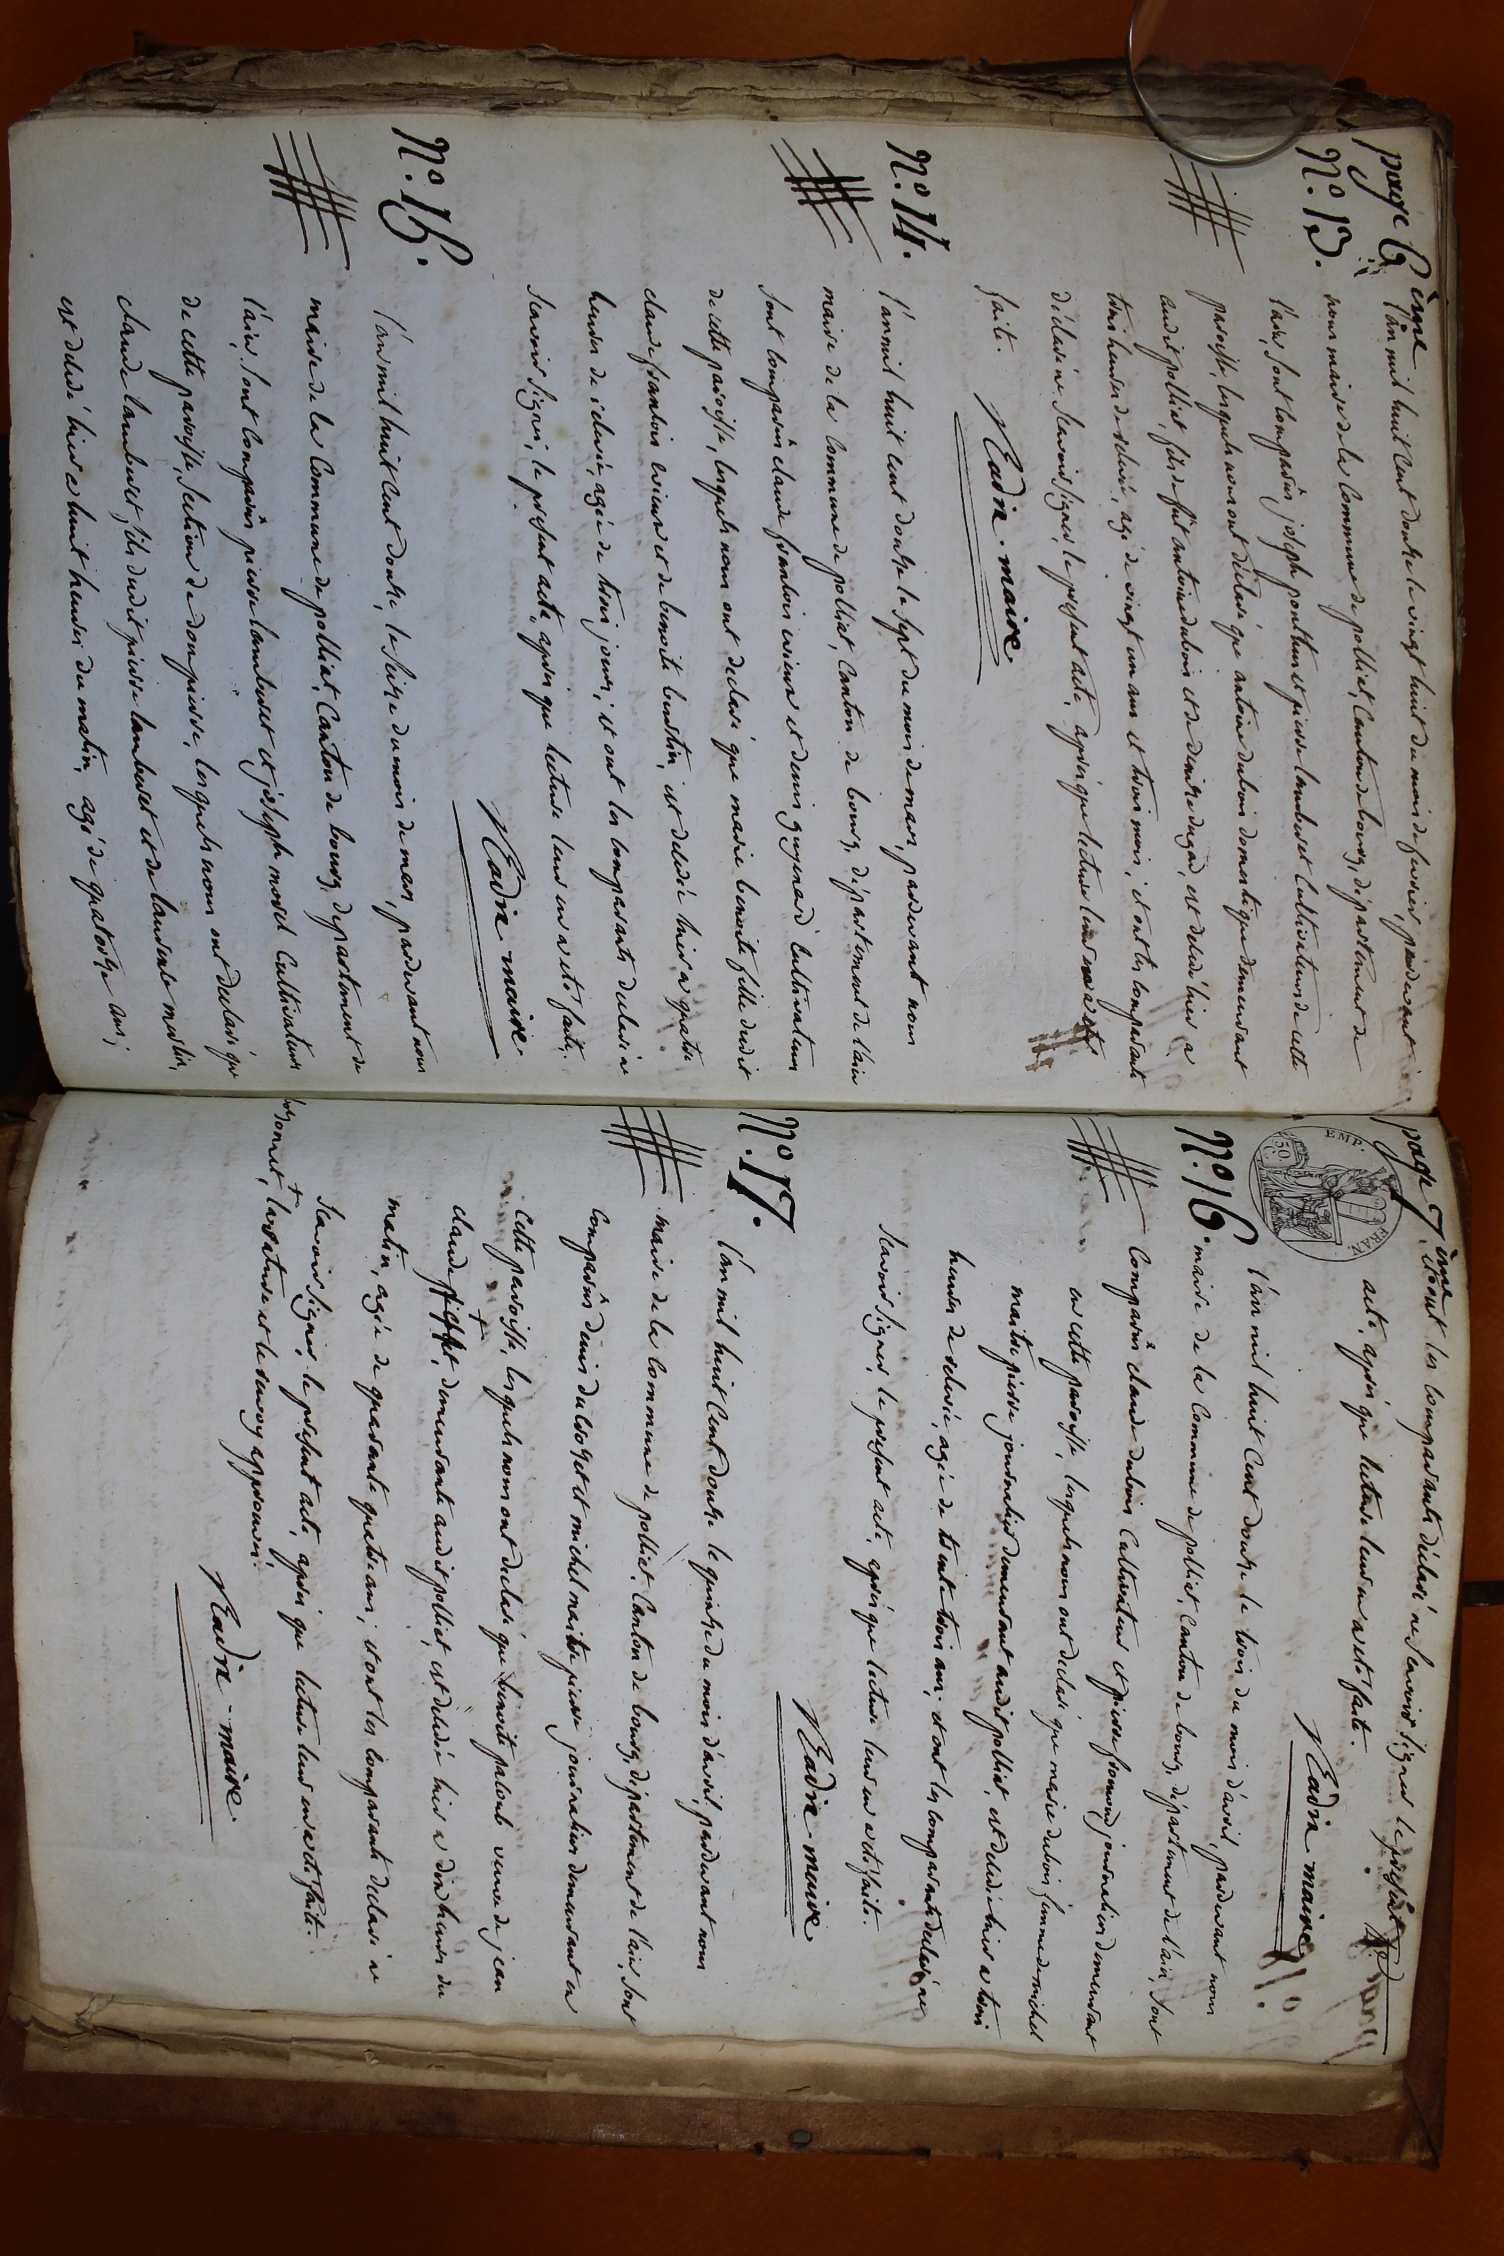 page 6ème
N.° 13.
l'an mil huit cent douze le vingt huit du mois de fevrier, pardevant
nous maire de la Commune de polliat, Canton de bourg, département de
l'ain, sont comparûs joseph ponthus et pierre lambert Cultivateurs de cette
paroisse, lesquels nous ont déclaré que antoine dubois domestique demeurant
audit polliat, fils de fût antoine dubois et de denise dugad, est décédé hier a
trois heures de relevé, agé de vingt un ans et trois mois; et ont les comparants
déclaré ne scavoir signer, le present acte, après que lecture leur en a été
faite.
Nadin. maire
N.° 14.
l'an mil huit cent douze le sept du mois de mars, pardevant nous
maire de la commune de polliat, Canton de bourg, département de l'ain
sont comparûs claude françois vieux et denis guyenard Cultivateurs
de cette paroisse, lesquels nous ont declaré que marie benoite fille dudit
claude françois vieux et de benoite bertin, est decedée hier a quatre
heures de relevée, agée de trois jours; et ont les comparants declaré ne
scavoir signer, le present acte, après que lecture leur en a été faite.
Nadin maire.
N.° 15.
l'an mil huit cent douze, le seize du mois de mars, pardevant nous
maire de la Commune de polliat, Canton de bourg, departement de
l'ain, sont comparûs pierre lambert et joseph morel Cultivateurs
de cette paroisse, section de dompierre, lesquels nous ont declaré que
claude lambert, fils dudit pierre lambert et de laurence merlin,
est decedé hier a huit heures du matin, agé de quatorze ans;
page 7ème
et ont les comparants déclaré ne scavoir signer le present
acte, après que lecture leur en a été faite.
Nadin maire
EMP. FRAN.
50.
N.° 16.
l'an mil huit Cent douze le trois du mois d'avril, pardevant nous
maire de la Commune de polliat, Canton de bourg, département de l'ain, sont
Comparûs claude dubois Cultivateur et pierre journalier demeurant
en cette paroisse, lesquels nous ont declaré que marie dubois femme de michel
maitre pierre journalier demeurant audit polliat, est decedée hier a trois
heures de relevée, agée de trente trois ans; et ont les comparants declaré ne
scavoir signer, le present acte, après que lecture leur en a été faite.
Nadin - maire
N.° 17.
l'an mil huit Cent douze le quinze du mois d'avril, pardevant nous
maire de la Commune de polliat. Canton de bourg, département de l'ain, sont
Comparûs denis ducrozet et michel maitre pierre journaliers demeurant en
cette paroisse, lesquels nous ont declaré que benoite palout veuve de jean
claude, demeurante audit polliat, est decedée hier a dix heures du
matin, agée de quarante quatre ans; et ont les comparants declaré ne
scavoir signer, le present acte, après que lecture leur en a été faite.
+ la rature et le renvoy approuvé.
Nadin - maire.